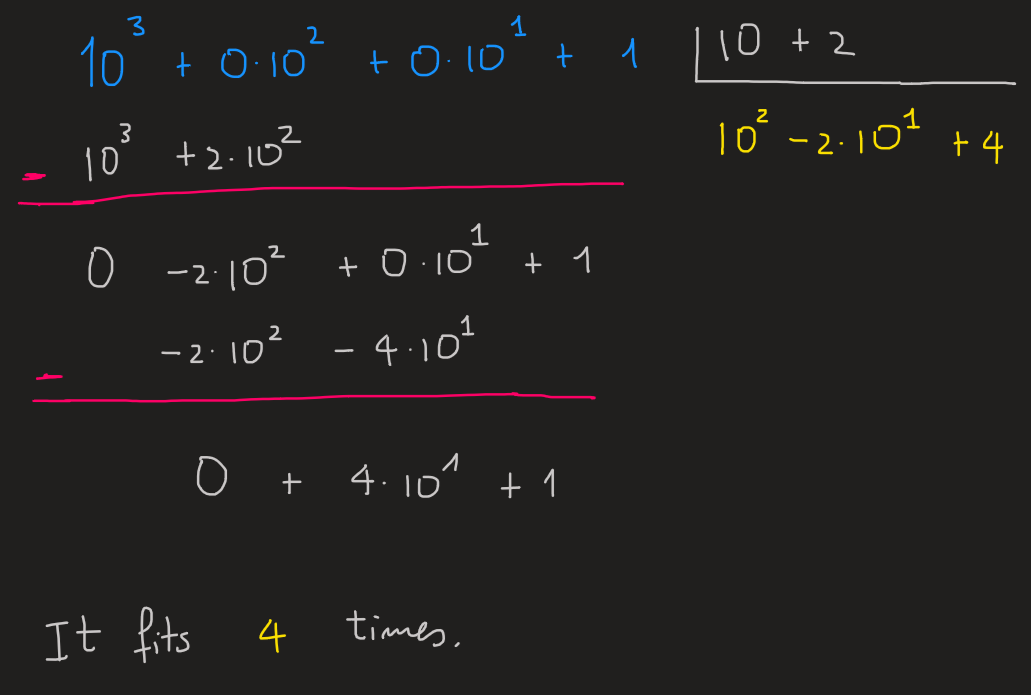 10³ + 0·10² + 0·10¹ + 1 | 10 + 2
10³ + 2·10² 10² - 2·10¹ + 4
-
0 -2·10² + 0·10¹ + 1
-2·10² - 4·10¹
-
0 + 4·10¹ + 1
It fits 4 times.